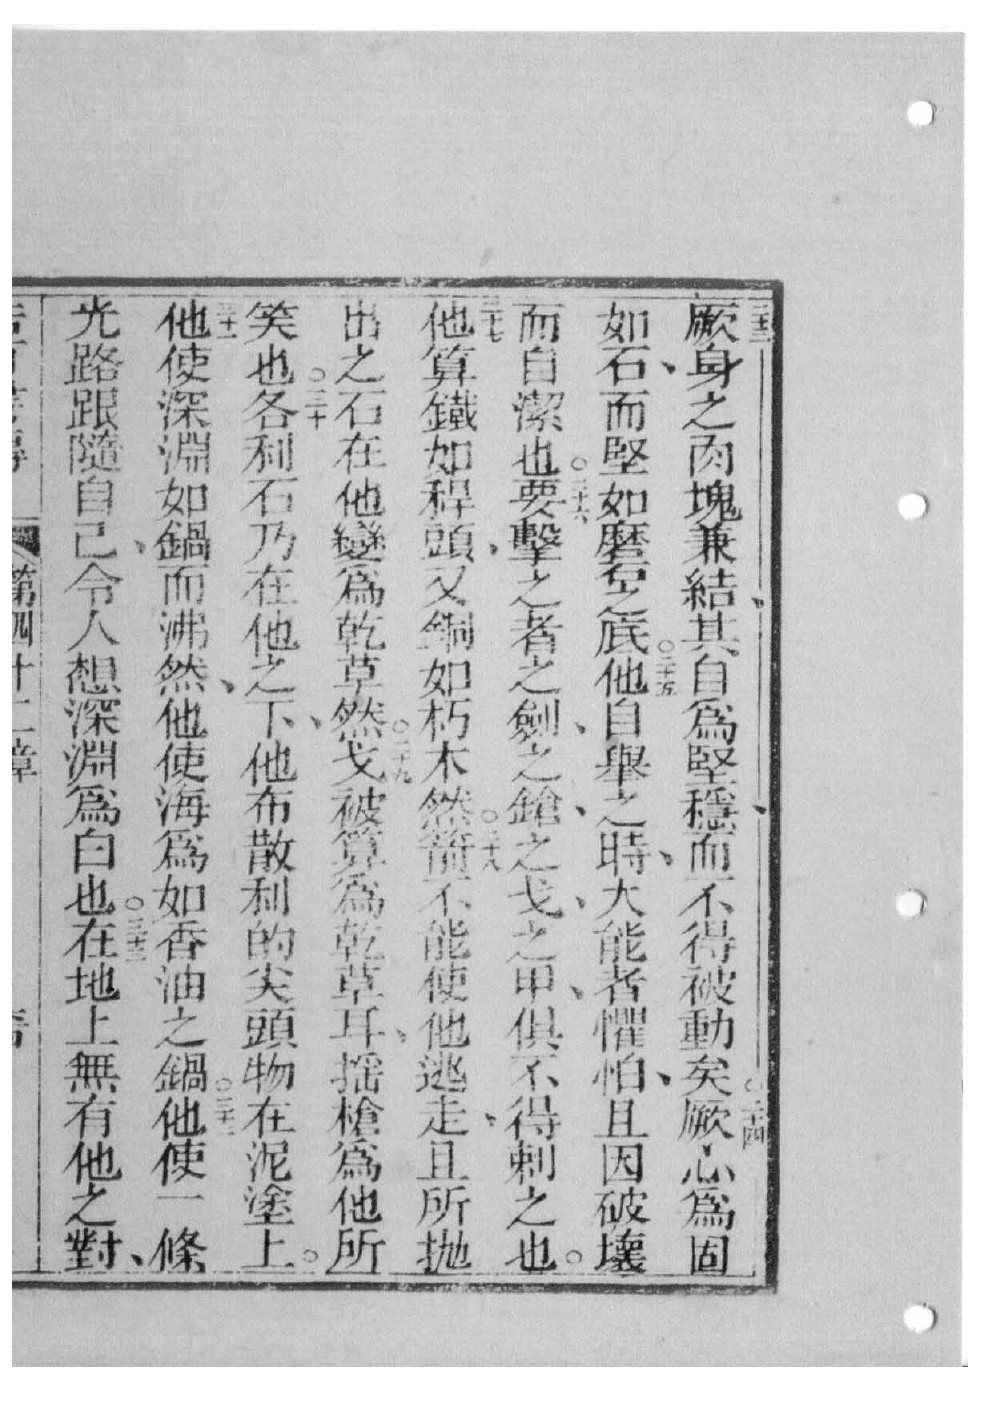 二十三厥身之肉塊兼結、其自為堅穩、而不得被動矣。二十四厥心為固
如石、而堅如磨𥐻之底。二十五他自舉之時、大能者懼怕、且因破壞
而自潔也。二十六要擊之者之劍、之鎗、之戈、之甲、俱不得刺之也。
二十七他算鐵如稈頭、又銅如朽木然。二十八箭不能使他逃走、且所拋
出之石在他變為乾草然。二十九戈被算為乾草耳、搖槍為他所
笑也。三十各利石乃在他之下、他布散利的尖頭物在泥塗上。
三十一他使深淵如鍋而沸然、他使海為如香油之鍋。三十二他使一條
光路跟隨自己、令人想深淵為白也。三十三在地上無有他之對、
第四十一章